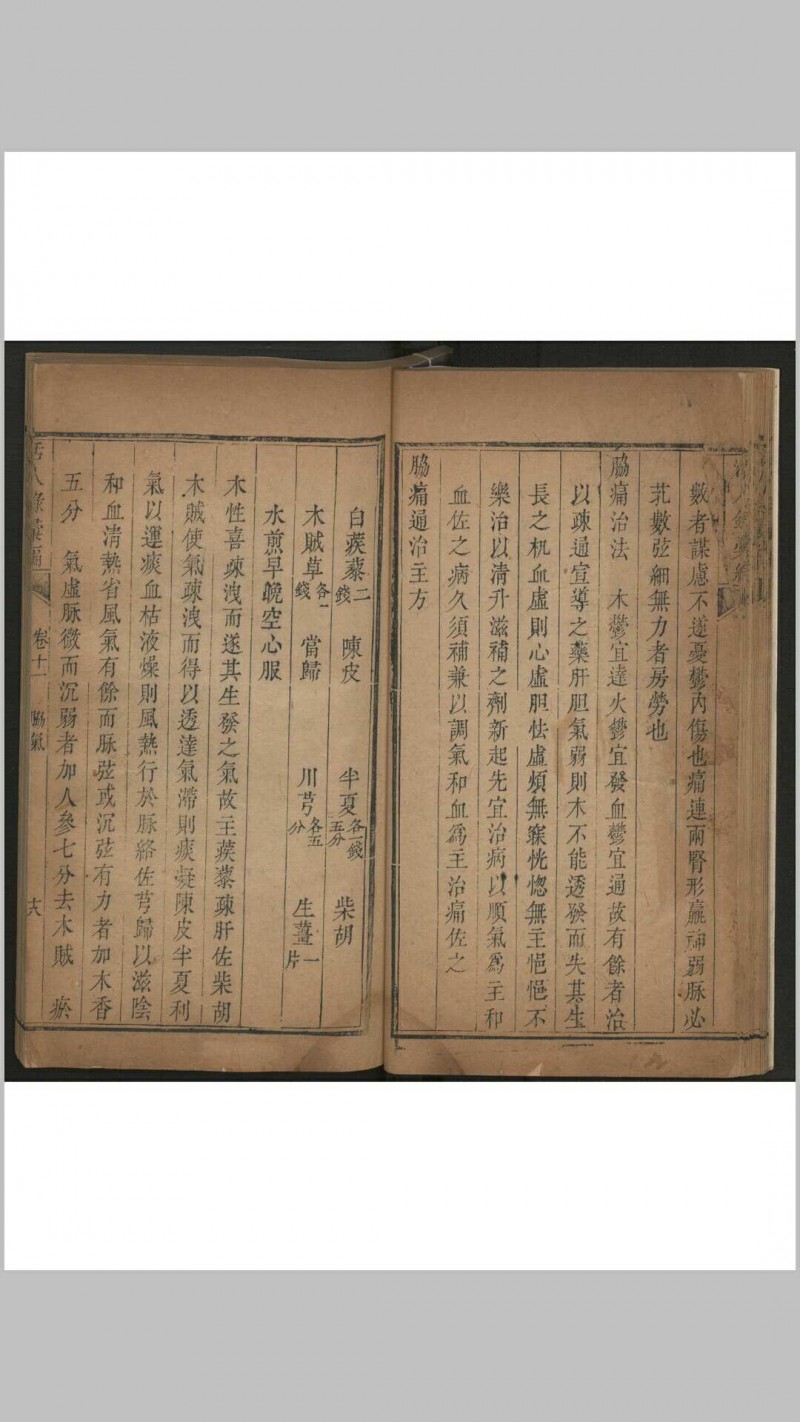 數者謀慮不遂憂鬱內傷也痛連兩腎形羸神弱脉必
芤數弦細無力者房勞也
脇痛治法　木鬱宜達火鬱宜發血鬱宜通故有餘者治
以疎通宣導之藥肝胆氣弱則木不能透發而失其生
長之机血虛則心虛胆怯虛煩無寐恍惚無主悒悒不
樂治以清升滋補之劑新起先宜治病以順氣爲主和
血佐之病久須補兼以調氣和血爲主治痛佐之
脇痛通治主方
白蒺藜二錢　陳皮　半夏各一錢五分　柴胡
木賊草各一錢　當歸　川芎各五分　生薑一片
水煎早晚空心服
木性喜疎洩而遂其生發之氣故主蒺藜疎肝佐柴胡
木賊使氣疎洩而得以透達氣滯則痰凝陳皮半夏利
氣以運痰血枯液燥則風熱行於脉絡佐芎歸以滋陰
和血清熱省風氣有餘而脉弦或沉弦有力者加木香
五分　氣虛脉微而沉弱者加人參七分去木賊　瘀
活人錄彙編　卷十一　脇氣　十八